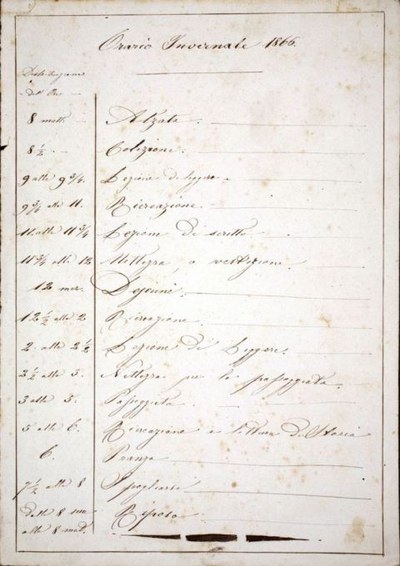 Orario Invernale 1866.
8 matt. Alzata.
8 ½ Colezione.
9 alle 9 ¾ Lezione di leggere.
9 ¾ alle 11. Ricreazione.
11 alle 11 ¾ Lezione di scritto
11 ¾ alle 12 e vestizione.
12 mer. Dejeuné.
12 ½ alle 2 Ricreazione.
2 alle 2 ½ Lezione di Leggere.
2 ½ alle 3. per la passeggiata.
3 alle 5. Passeggiata.
5 alle 6. Ricreazione e lettura di Storia
6. Pranzo
7 ½ alle 8 Spogliarsi
dalle 8 Riposo
alle 8 matt.